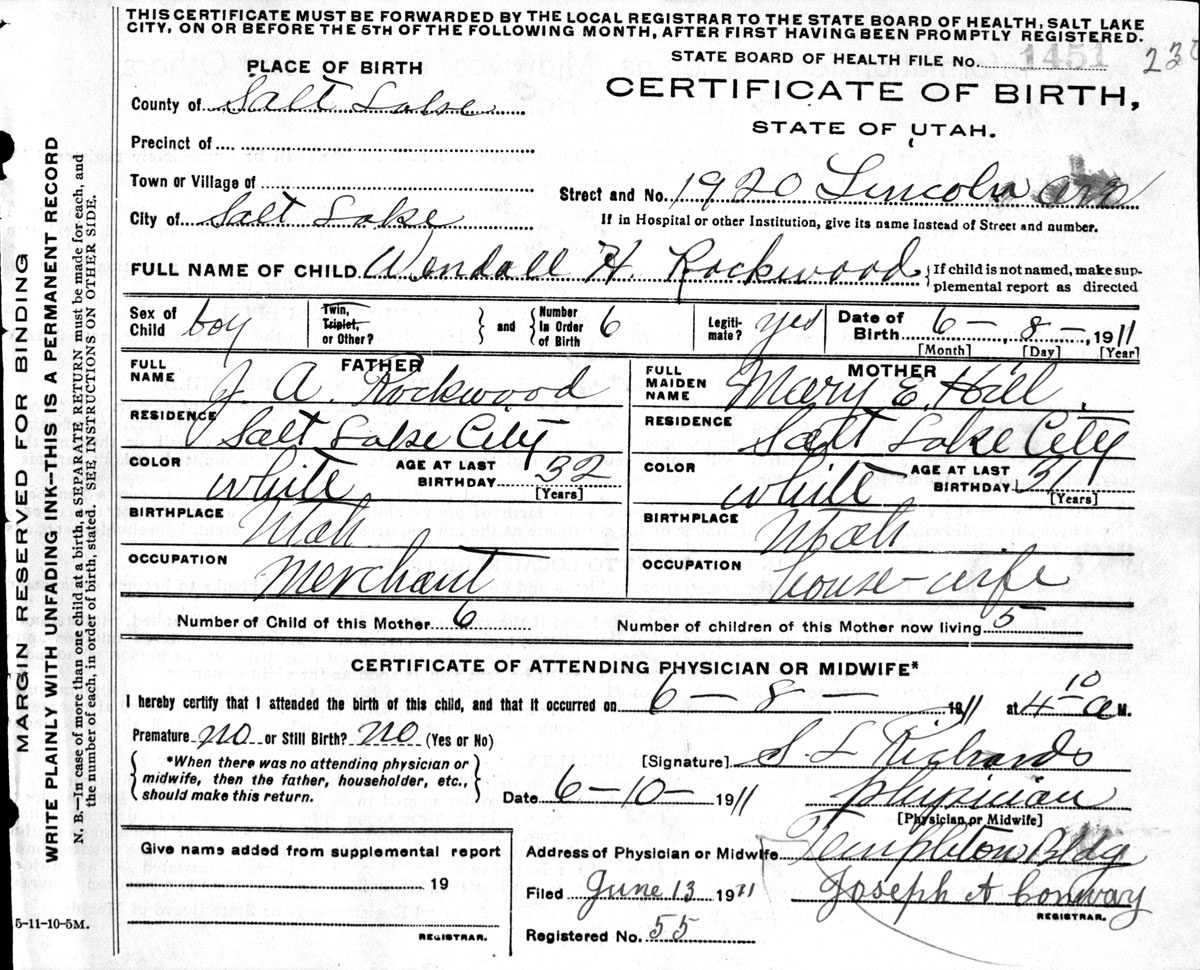 THIS CERTIFICATE MUST BE FORWARDED BY THE LOCAL REGISTRAR TO THE STATE BOARD OF HEALTH, SALT LAKE
CITY, ON OR BEFORE THE 5TH OF THE FOLLOWING MONTH, AFTER FIRST HAVING BEEN PROMPTLY REGISTERED.
STATE BOARD OF HEALTH FILE No. 1451
PLACE OF BIRTH
CERTIFICATE OF BIRTH,
County of Salt Lake
STATE OF UTAH.
Precinct of
Town or Village of
Street and No. 1920 Lincoln ave
City of Salt Lake
If in Hospital or other Institution, give its name instead of Street and number.
FULL NAME OF CHILD Wendall H. Rockwood { If child is not named, make sup-
plemental report as directed
Sex of Child boy
Twin, Triplet, or Other? } and { Number In Order of Birth 6
Legiti-mate? yes
Date of Birth 6 - 8 - 1911
[Month] [Day] [Year]
FATHER
FULL NAME J. A. Rockwood
RESIDENCE Salt Lake City
COLOR white AGE AT LAST BIRTHDAY 32 [Years]
BIRTHPLACE Utah
OCCUPATION Merchant
MOTHER
FULL MAIDEN NAME Mary E. Hall
RESIDENCE Salt Lake City
COLOR white AGE AT LAST BIRTHDAY 31 [Years]
BIRTHPLACE Utah
OCCUPATION house-wife
Number of Child of this Mother 6 Number of children of this Mother now living 5
CERTIFICATE OF ATTENDING PHYSICIAN OR MIDWIFE*
I hereby certify that I attended the birth of this child, and that it occurred on 6 - 8 - 1911 at 4 10 a M.
Premature no or Still Birth? no (Yes or No)
{ *When there was no attending physician or
midwife, then the father, householder, etc.,
should make this return. }
[Signature] S L Richards
Date 6-10- 1911 physician
[Physician or Midwife]
Give name added from supplemental report
19
REGISTRAR.
Address of Physician or Midwife Templeton Bldg
Filed June 13 1911 Joseph A Conway
REGISTRAR.
Registered No. 55
5-11-10-5M.
MARGIN RESERVED FOR BINDING
WRITE PLAINLY WITH UNFADING INK—THIS IS A PERMANENT RECORD
N. B.—In case of more than one child at a birth, a SEPARATE RETURN must be made for each, and
the number of each, in order of birth, stated. SEE INSTRUCTIONS ON OTHER SIDE.